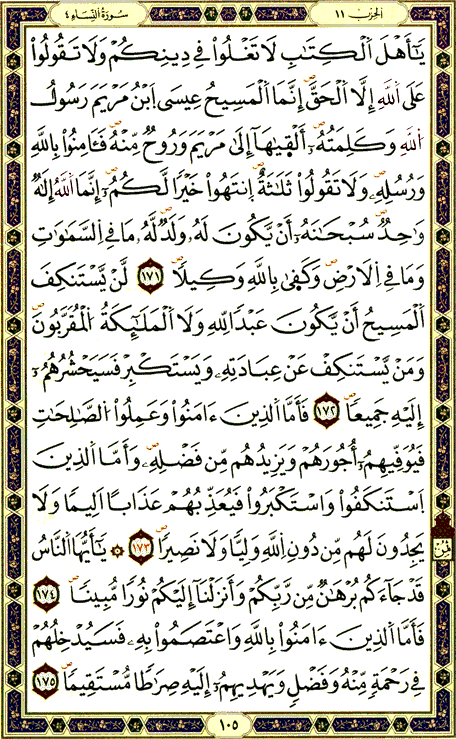 الحزب ١١ سورة النساء ٤
يَٰٓأَهْلَ اَ۬لْكِتَٰبِ لَا تَغْلُواْ فِے دِينِكُمْ وَلَا تَقُولُواْ
عَلَى اَ۬للَّهِ إِلَّا اَ۬لْحَقَّ إِنَّمَا اَ۬لْمَسِيحُ عِيسَى اَ۪بْنُ مَرْيَمَ رَسُولُ
اُ۬للَّهِ وَكَلِمَتُهُۥٓ أَلْق۪يٰهَآ إِلَىٰ مَرْيَمَ وَرُوحٞ مِّنْهُ فَـَٔامِنُواْ بِاللَّهِ
وَرُسُلِهِۦ وَلَا تَقُولُواْ ثَلَٰثَةٌ اِ۪نتَهُواْ خَيْراٗ لَّكُمُۥٓ إِنَّمَا اَ۬للَّهُ إِلَٰهٞ
وَٰحِدٞ سُبْحَٰنَهُۥٓ أَنْ يَّكُونَ لَهُۥ وَلَدٞ لَّهُۥ مَا فِے اِ۬لسَّمَٰوَٰتِ
وَمَا فِے اِ۬لَارْضِ وَكَف۪يٰ بِاللَّهِ وَكِيلاٗ ١٧١ لَّنْ يَّسْتَنكِفَ
اَ۬لْمَسِيحُ أَنْ يَّكُونَ عَبْداٗ لِّلهِ وَلَا اَ۬لْمَلَٰٓئِكَةُ اُ۬لْمُقَرَّبُونَ
وَمَنْ يَّسْتَنكِفْ عَنْ عِبَادَتِهِۦ وَيَسْتَكْبِرْ فَسَيَحْشُرُهُمُۥٓ
إِلَيْهِ جَمِيعاٗ ١٧٢ فَأَمَّا اَ۬لذِينَ ءَامَنُواْ وَعَمِلُواْ اُ۬لصَّٰلِحَٰتِ
فَيُوَفِّيهِمُۥٓ أُجُورَهُمْ وَيَزِيدُهُم مِّن فَضْلِهِۦ وَأَمَّا اَ۬لذِينَ
اَ۪سْتَنكَفُواْ وَاسْتَكْبَرُواْ فَيُعَذِّبُهُمْ عَذَاباً اَلِيماٗ وَلَا
يَجِدُونَ لَهُم مِّن دُونِ اِ۬للَّهِ وَلِيّاٗ وَلَا نَصِيراٗ ١٧٣ ۞ يَٰٓأَيُّهَا اَ۬لنَّاسُ
قَدْ جَآءَكُم بُرْهَٰنٞ مِّن رَّبِّكُمْ وَأَنزَلْنَآ إِلَيْكُمْ نُوراٗ مُّبِيناٗ ١٧٤
فَأَمَّا اَ۬لذِينَ ءَامَنُواْ بِاللَّهِ وَاعْتَصَمُواْ بِهِۦ فَسَيُدْخِلُهُمْ
فِے رَحْمَةٖ مِّنْهُ وَفَضْلٖ وَيَهْدِيهِمُۥٓ إِلَيْهِ صِرَٰطاٗ مُّسْتَقِيماٗ ١٧٥
ثمن
١٠٥